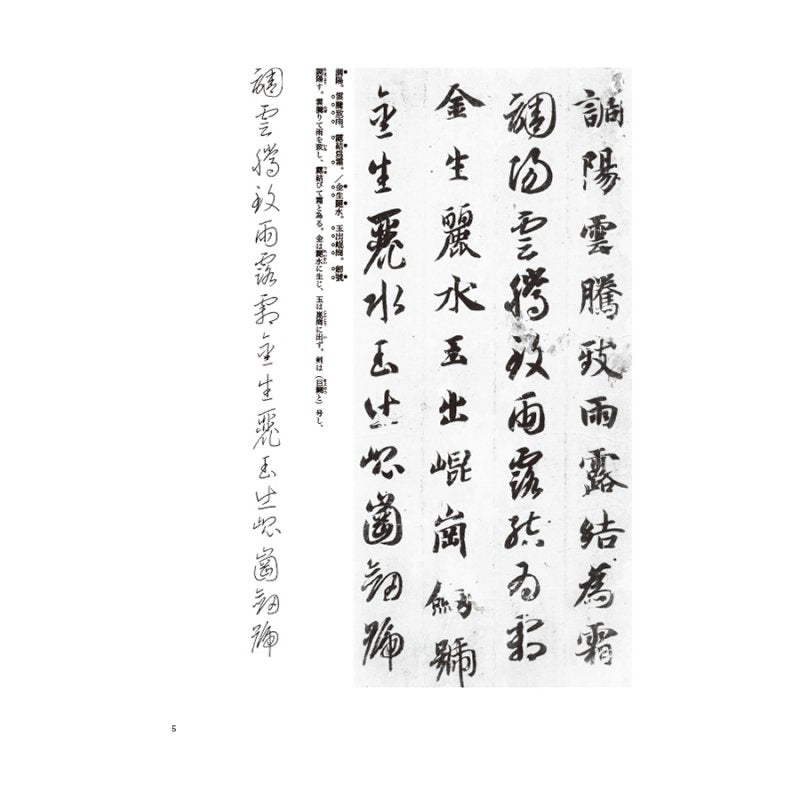 調陽雲騰致雨露結為霜
調陽雲騰致雨露結為霜
金生麗水玉出崐崗劔號
金生麗水玉出崐崗劔號
調陽。雲騰致雨。露結爲霜。／金生麗水。玉出崐崗。劒號
調陽す。雲騰りて雨を致し、露結びて霜と為る。金は麗水に生じ、玉は崑崗に出ず。剣は（巨闕と）号し、
調雲騰致雨露霜金生麗玉出崐崗劔號
5